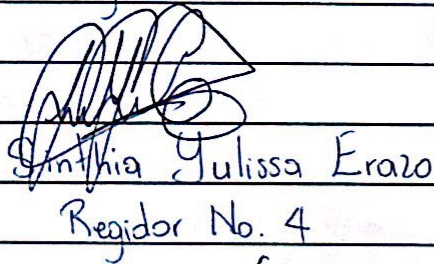 Sinthia Yulissa Erazo
Regidor No. 4